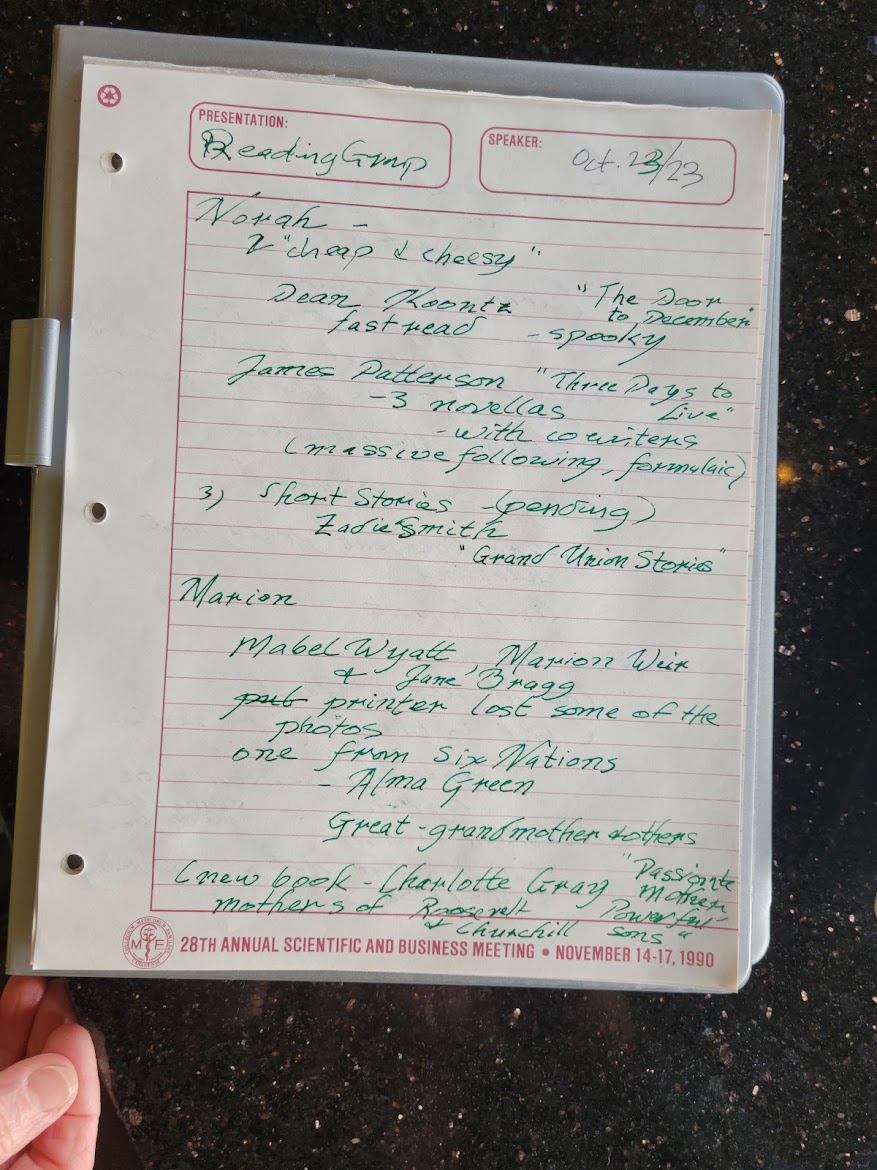 PRESENTATION:
Reading Group
SPEAKER:
Oct. 23/23
Norah -
2 "cheap & cheesy"
Dean Koontz "The Door
to December"
fast read - spooky
James Patterson "Three Days to
Live"
-3 novellas
-with cowriters
(massive following, formulaic)
3) Short Stories -(pending)
Zadie Smith
"Grand Union Stories"
Marion
Mabel Wyatt, Marion Weir
& June Bragg
pub printer lost some of the
photos
one from Six Nations
- Alma Green
Great-grandmother & others
(new book - Charlotte Gray "Passionte
Mothers
mothers of Roosevelt Powerful
& Churchill sons"
28TH ANNUAL SCIENTIFIC AND BUSINESS MEETING • NOVEMBER 14-17, 1990